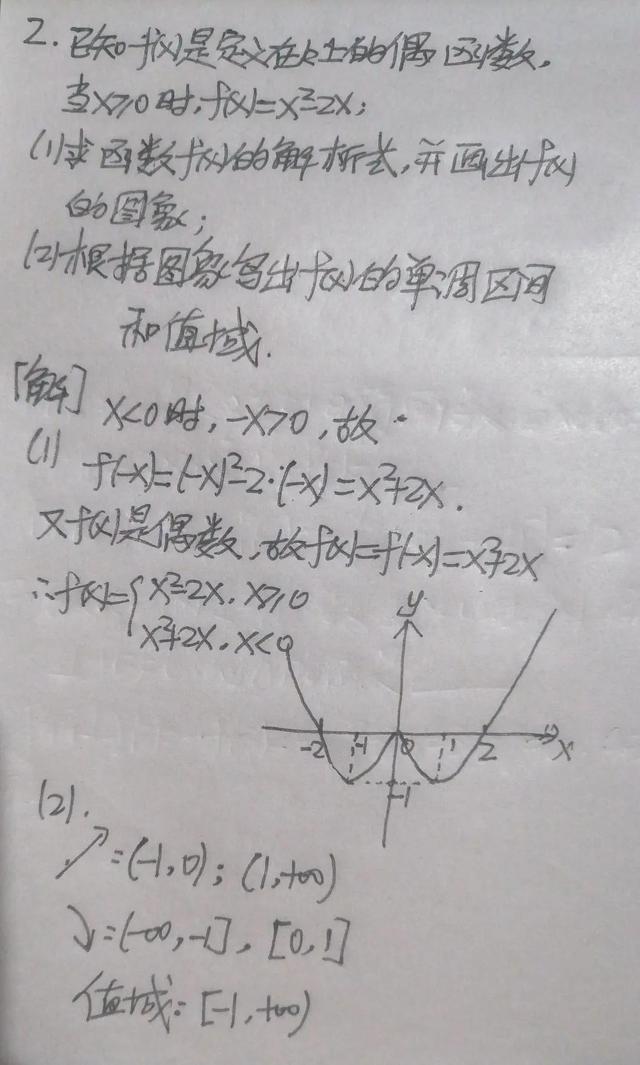 2.已知f(x)是定义在R上的偶函数,
当x≥0时,f(x)=x²-2x;
(1)求函数f(x)的解析式,并画出f(x)
的图象;
(2)根据图象写出f(x)的单调区间
和值域.
[解]
x<0时,-x>0,故
(1)
f(-x)=(-x)²-2·(-x)=x²+2x.
又f(x)是偶数,故f(x)=f(-x)=x²+2x
∴f(x)={x²-2x.x≥0
x²+2x.x<0
y
-2 -1 0 1 2 x
-1
(2).
↗=(-1,0);(1,+∞)
↘=(-∞,-1],[0,1]
值域:[-1,+∞)